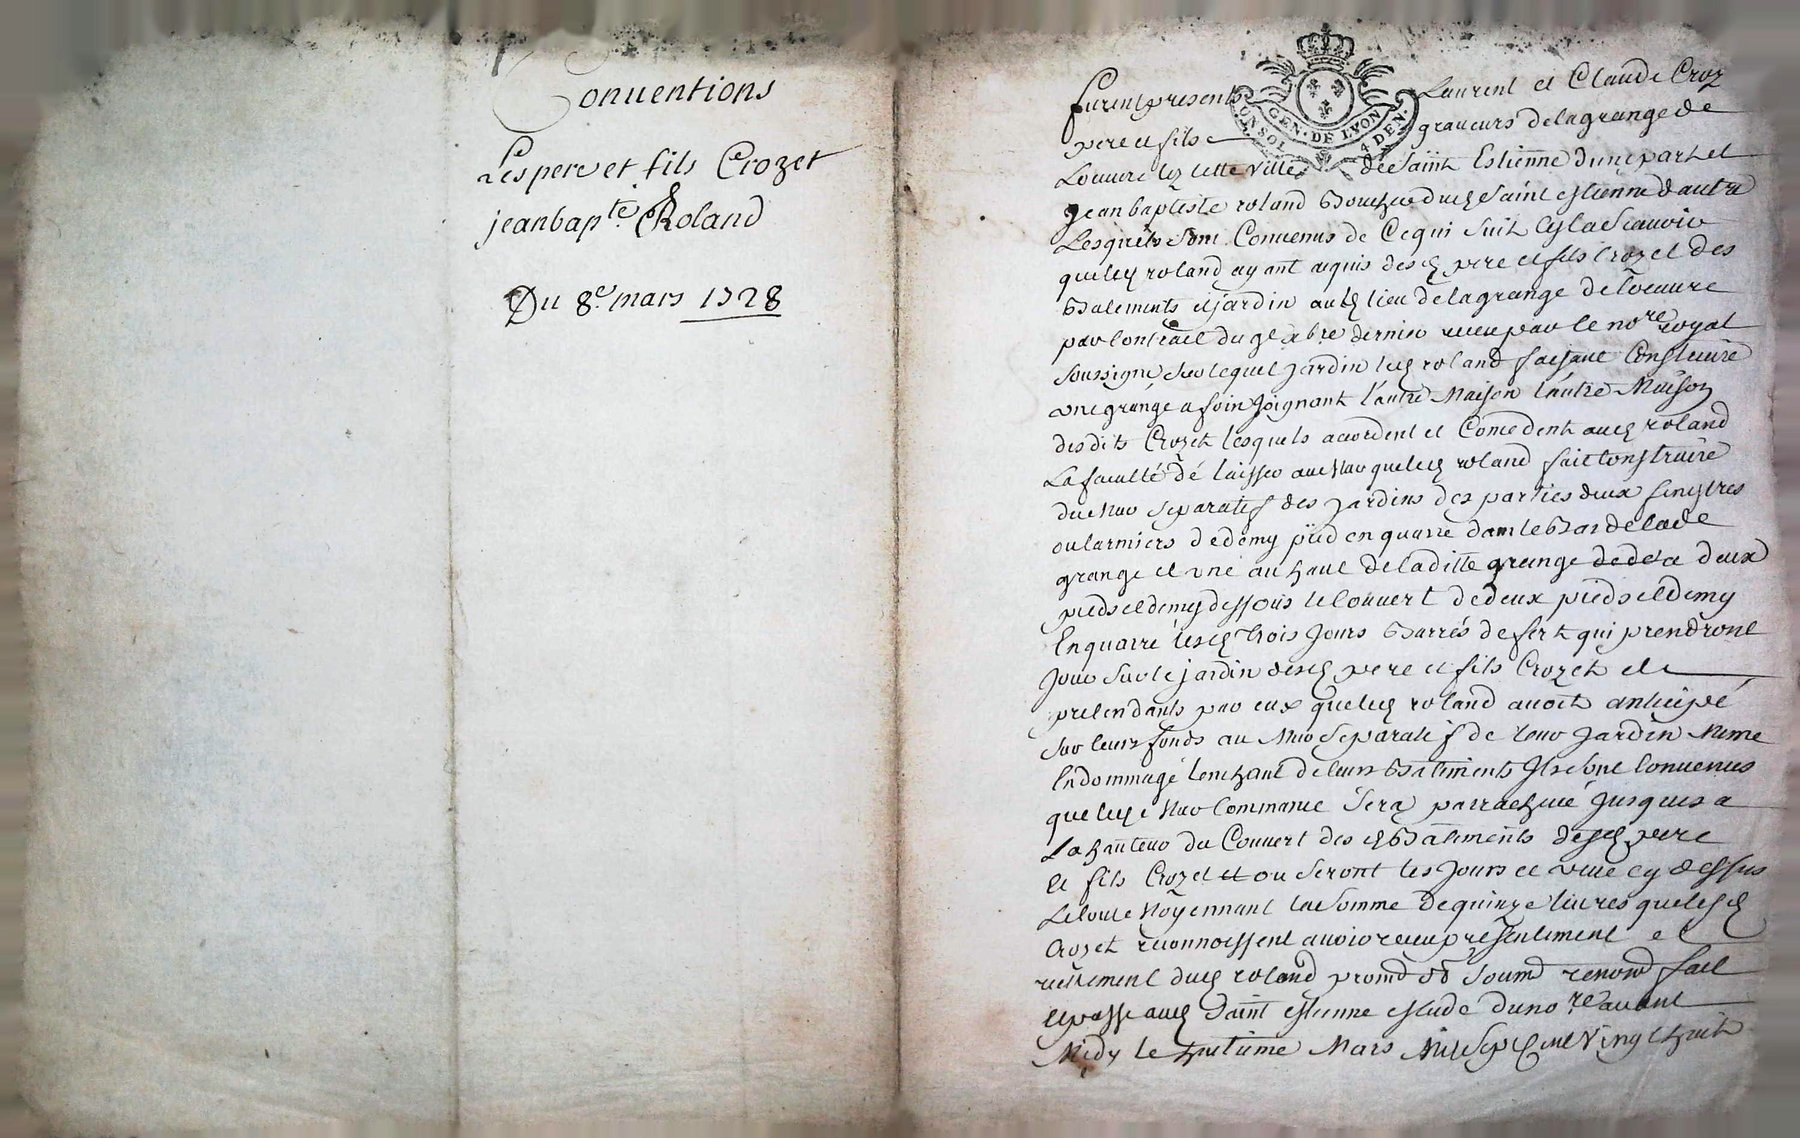 Conventions
Les pere et fils Crozet
&
jeanbap.te Roland
Du 8.e mars 1728
GEN · DE LYON
4 DEN
furent presents Laurent et Claude Croz
pere et fils graveurs de la grange de
Loeuure lez cette ville de Saint Estienne dune part et
Jean baptiste roland Boucher dud Saint estienne dautre
Lesquels sont Convenus de Ce qui suit
que led roland ayant aquis desd pere et fils Crozet des
Batements et jardin aud lieu de la grange de loeuure
par Contract du 9e xbre dernier receu par le nore royal
soussigné sur lequel jardin led roland faisant Construire
une grange a foin joignant l'autre Maison l'autre Maison
desdits Crozet lesquels accordent et Concedent aud roland
La faculté de laisser au mur que led roland fait Construire
du mur separatif des jardins des parties deux fenestres
ou larmiers de demy pied en quarré dans le Bas de lad
grange et une au haut de laditte grange deux
pieds et demy dessous le Couvert de deux pieds et demy
En quarré lesd trois Jours Barrés de fert qui prendront
Jour sur le jardin desd pere et fils Crozet et
pretendants par eux que led roland avoit anticipé
sur leurs fonds au Mur separatif de leur Jardin Meme
Endommagé de leurs Batiments Ils sont Convenus
que led Mur Commance sera parrachevé Jusques a
La hauteur du Couvert des d Batiments desd pere
et fils Crozet et ou seront les Jours et veue cy dessus
Le tout Moyennant la somme de quinze livres que lesd
Crozet reconnoissent avoir receu presentement et
reellement dud roland fait
et passé aud Saint estienne estude du nore avant
Midy le huitieme Mars Mil Sept Cent Vingt huit